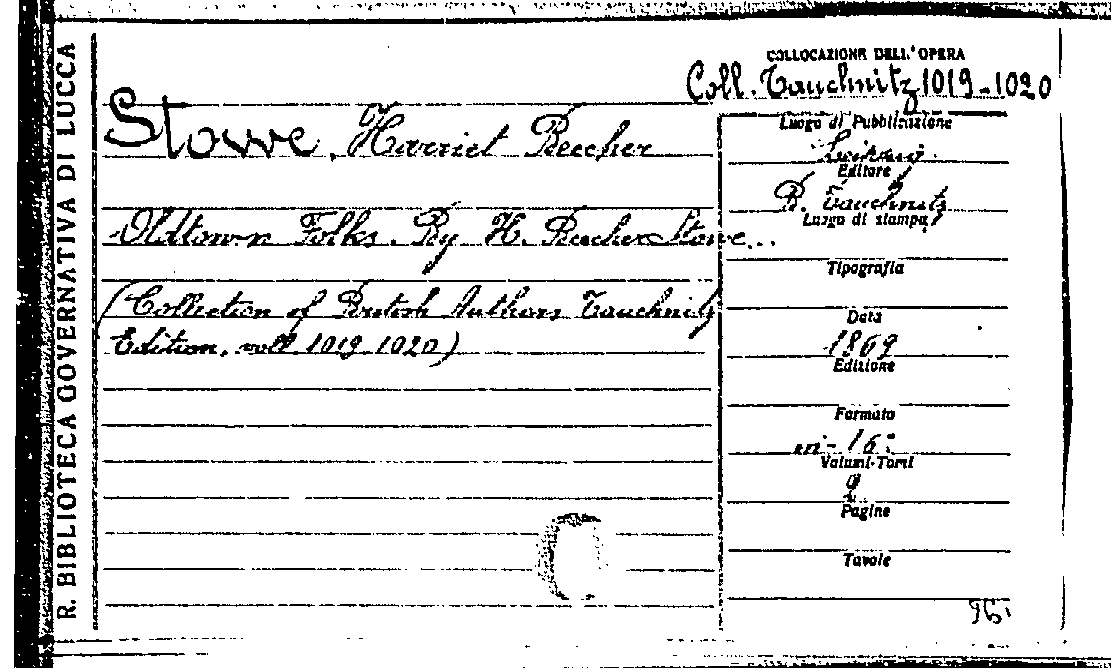 R. BIBLIOTECA GOVERNATIVA DI LUCCA
COLLOCAZIONE DELL'OPERA
Coll. Tauchnitz 1019-1020
Stowe, Harriet Beecher
Oldtown Folks. By H. Beecher Stowe...
(Collection of British Authors Tauchnitz
Edition, voll. 1019 1020)
Luogo di Pubblicazione
Editore
B. Tauchnitz
Luogo di stampa
Tipografia
Data
1869
Edizione
Formato
in-16°
Volumi-Tomi
2
Pagine
Tavole